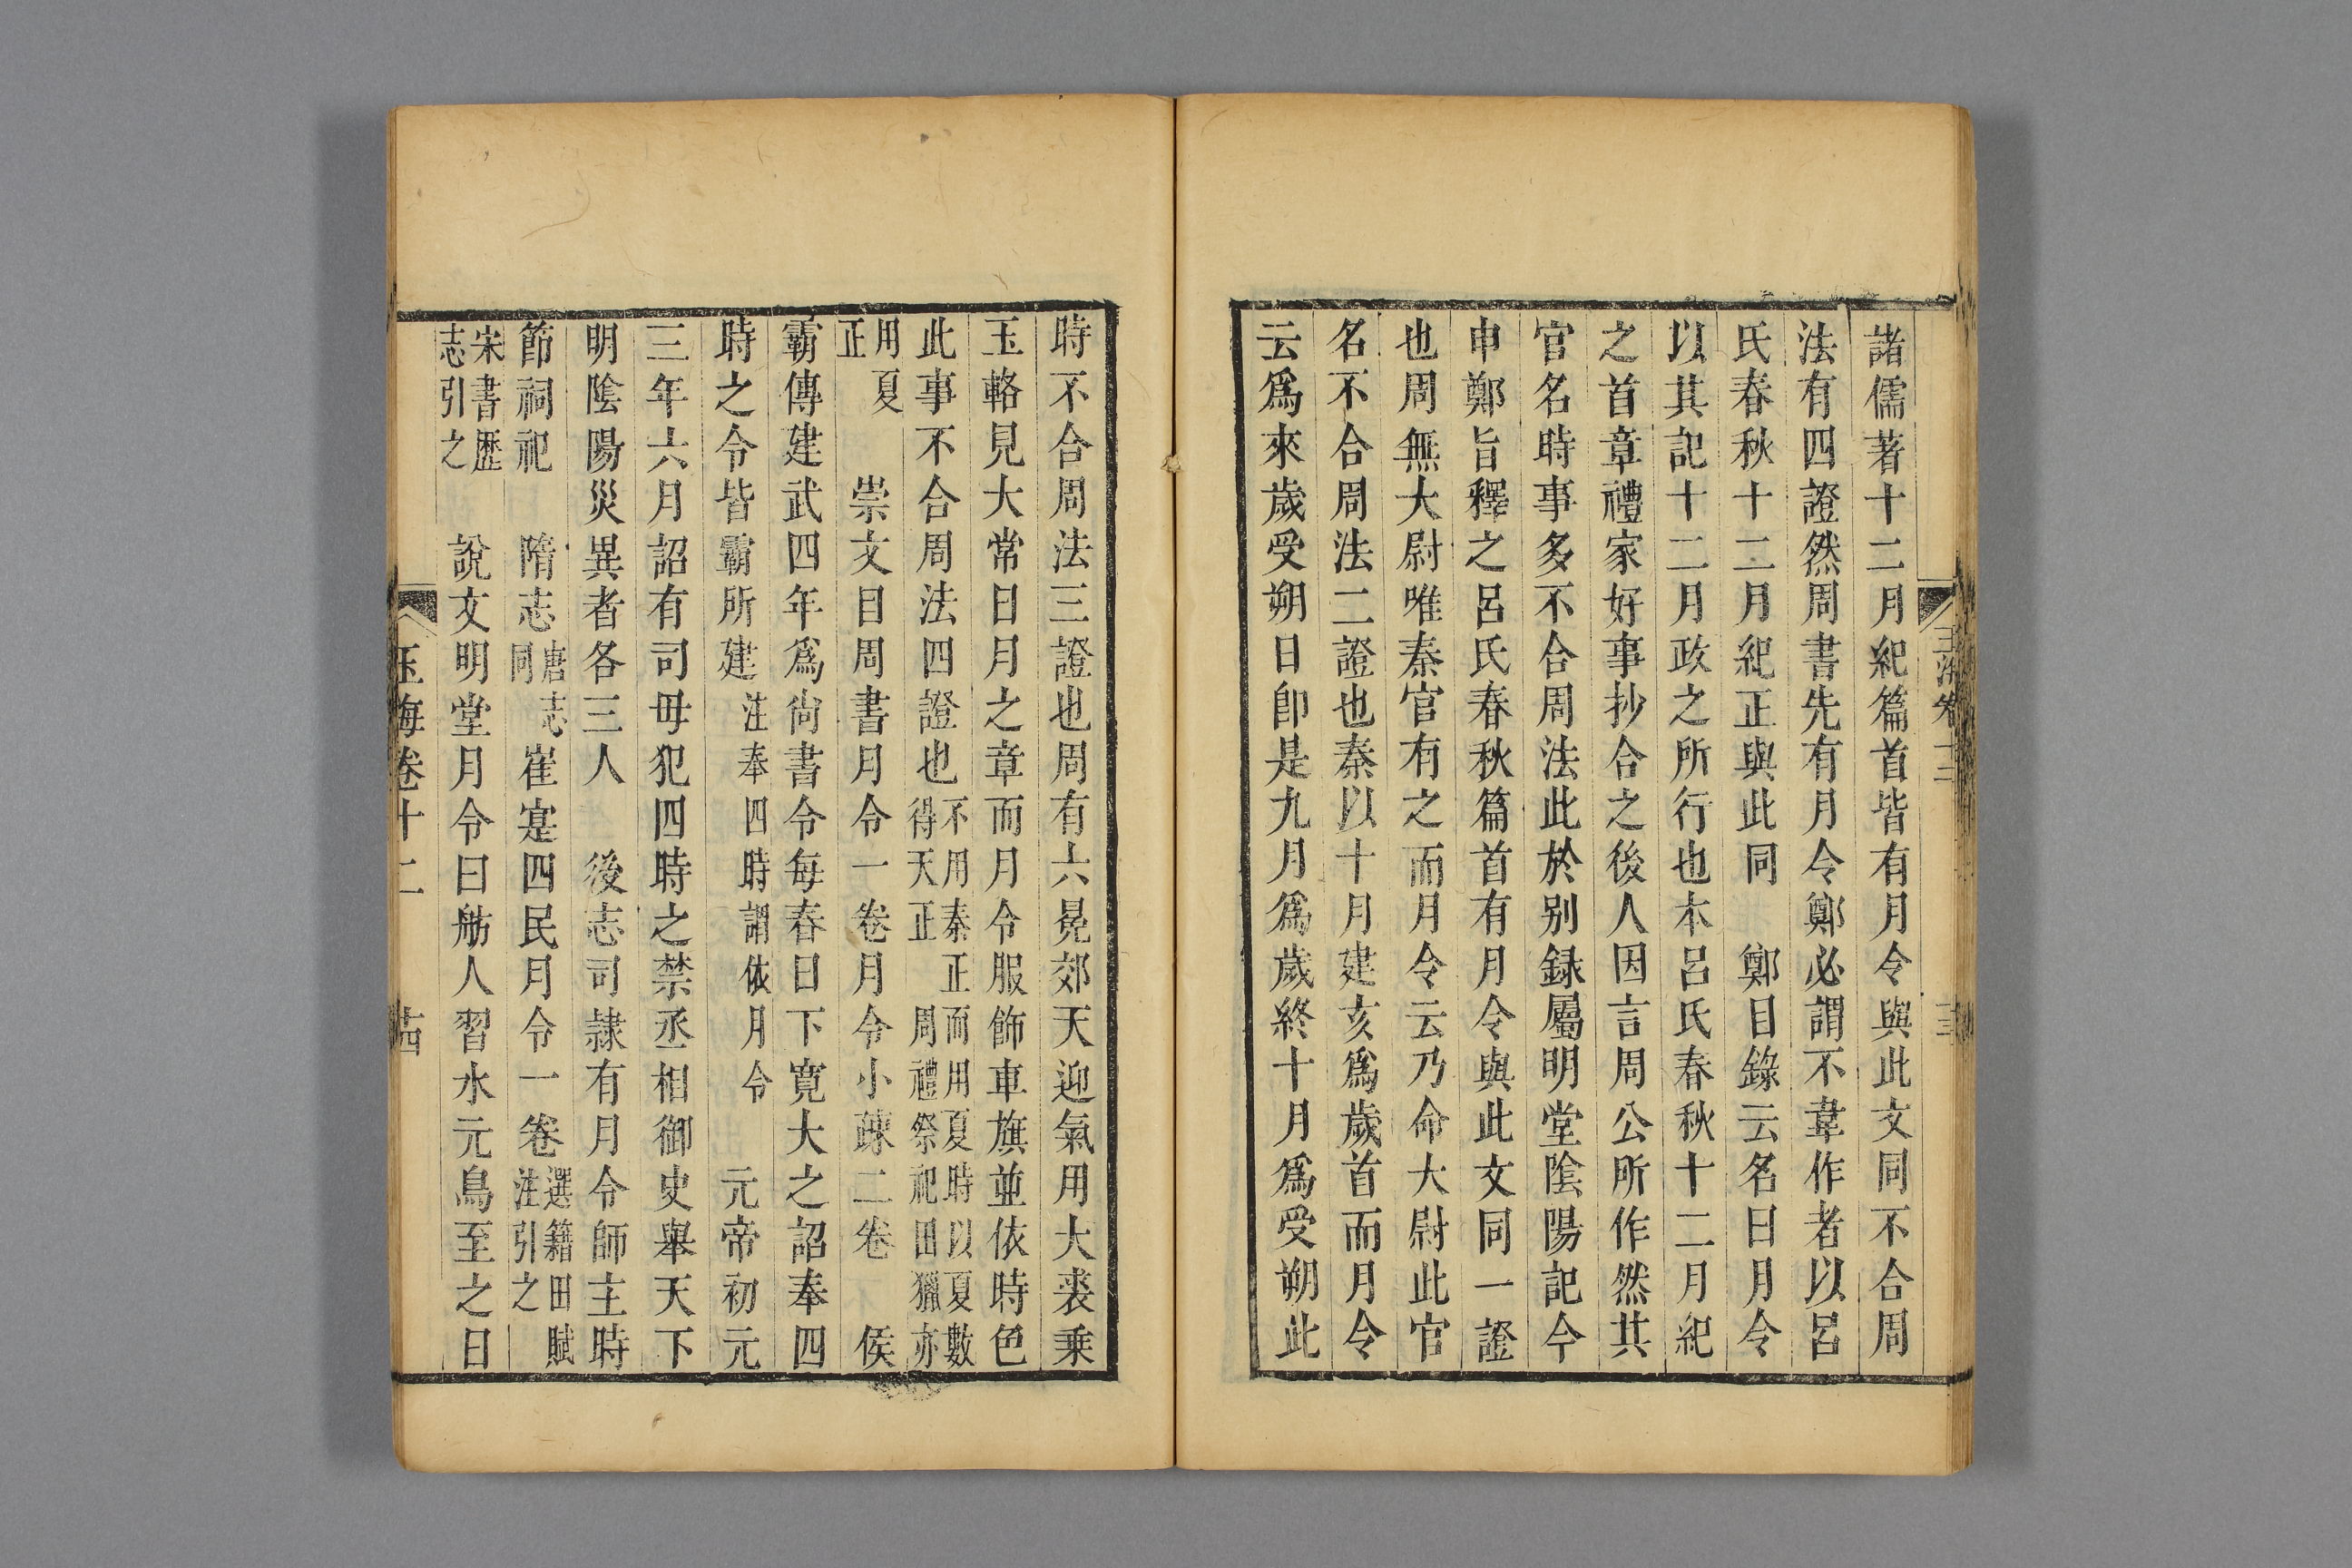 諸儒著十二月紀篇首皆有月令與此文同不合周
法有四證然周書先有月令鄭必謂不韋作者以呂
氏春秋十二月紀正與此同　鄭目錄云名曰月令
以其記十二月政之所行也本呂氏春秋十二月紀
之首章禮家好事抄合之後人因言周公所作然其
官名時事多不合周法此於別録屬明堂陰陽記今
申鄭旨釋之呂氏春秋篇首有月令與此文同一證
也周無大尉唯秦官有之而月令云乃命大尉此官
名不合周法二證也秦以十月建亥爲歲首而月令
云爲來歲受朔日卽是九月爲歲終十月爲受朔此
時不合周法三證也周有六冕郊天迎氣用大裘乗
玉輅見大常日月之章而月令服飾車旗並依時色
此事不合周法四證也不用秦正而用夏時以夏數
得天正　周禮祭祀田獵亦
用夏
正　崇文目周書月令一卷月令小疎二卷　侯
霸傳建武四年爲尚書令每春日下寬大之詔奉四
時之令皆霸所建注奉四時謂依月令　元帝初元
三年六月詔有司毋犯四時之禁丞相御史舉天下
明陰陽災異者各三人　後志司隷有月令師主時
節祠祀　隋志唐志
同崔寔四民月令一卷選籍田賦
注引之
宋書歷
志引之　說文明堂月令曰舫人習水元鳥至之日
玉海卷十二
十四